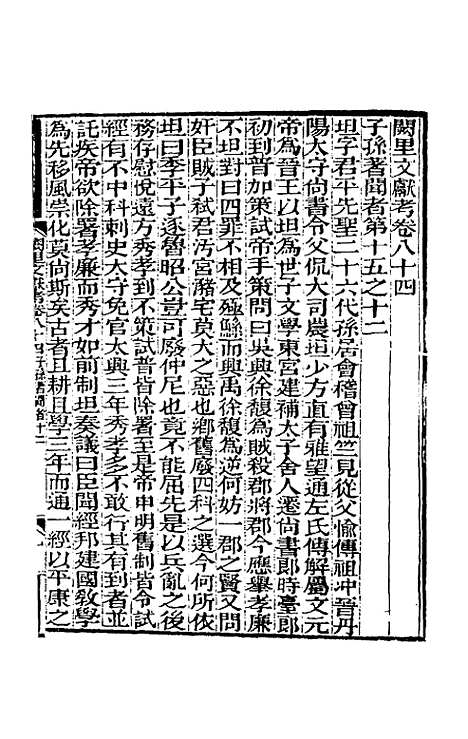 闕里文獻考卷八十四
子孫著聞者第十五之十二
坦字君平先聖二十六代孫居會稽曾祖竺見從父愉傳祖冲晉丹
陽太守尚書令父侃大司農坦少方直有雅望通左氏傳解屬文元
帝為晉王以坦為世子文學東宮建補太子舍人遷尚書郎時臺郎
初到普加策試帝手策問曰吳興徐馥為賊殺郡將郡今應舉孝廉
不坦對曰四罪不相及殛鯀而興禹徐馥為逆何妨一郡之賢又問
奸臣賊子弒君汚宮潴宅莫大之惡也鄉舊廢四科之選今何所依
坦曰季平子逐魯昭公豈可廢仲尼也竟不能屈先是以兵亂之後
務存慰悅遠方秀孝到不策試普皆除署至是帝申明舊制皆令試
經有不中科刺史太守免官太興三年秀孝多不敢行其有到者並
託疾帝欲除署孝廉而秀才如前制坦奏議曰臣聞經邦建國敎學
為先移風崇化莫尚斯矣古者且耕且學三年而通一經以平康之